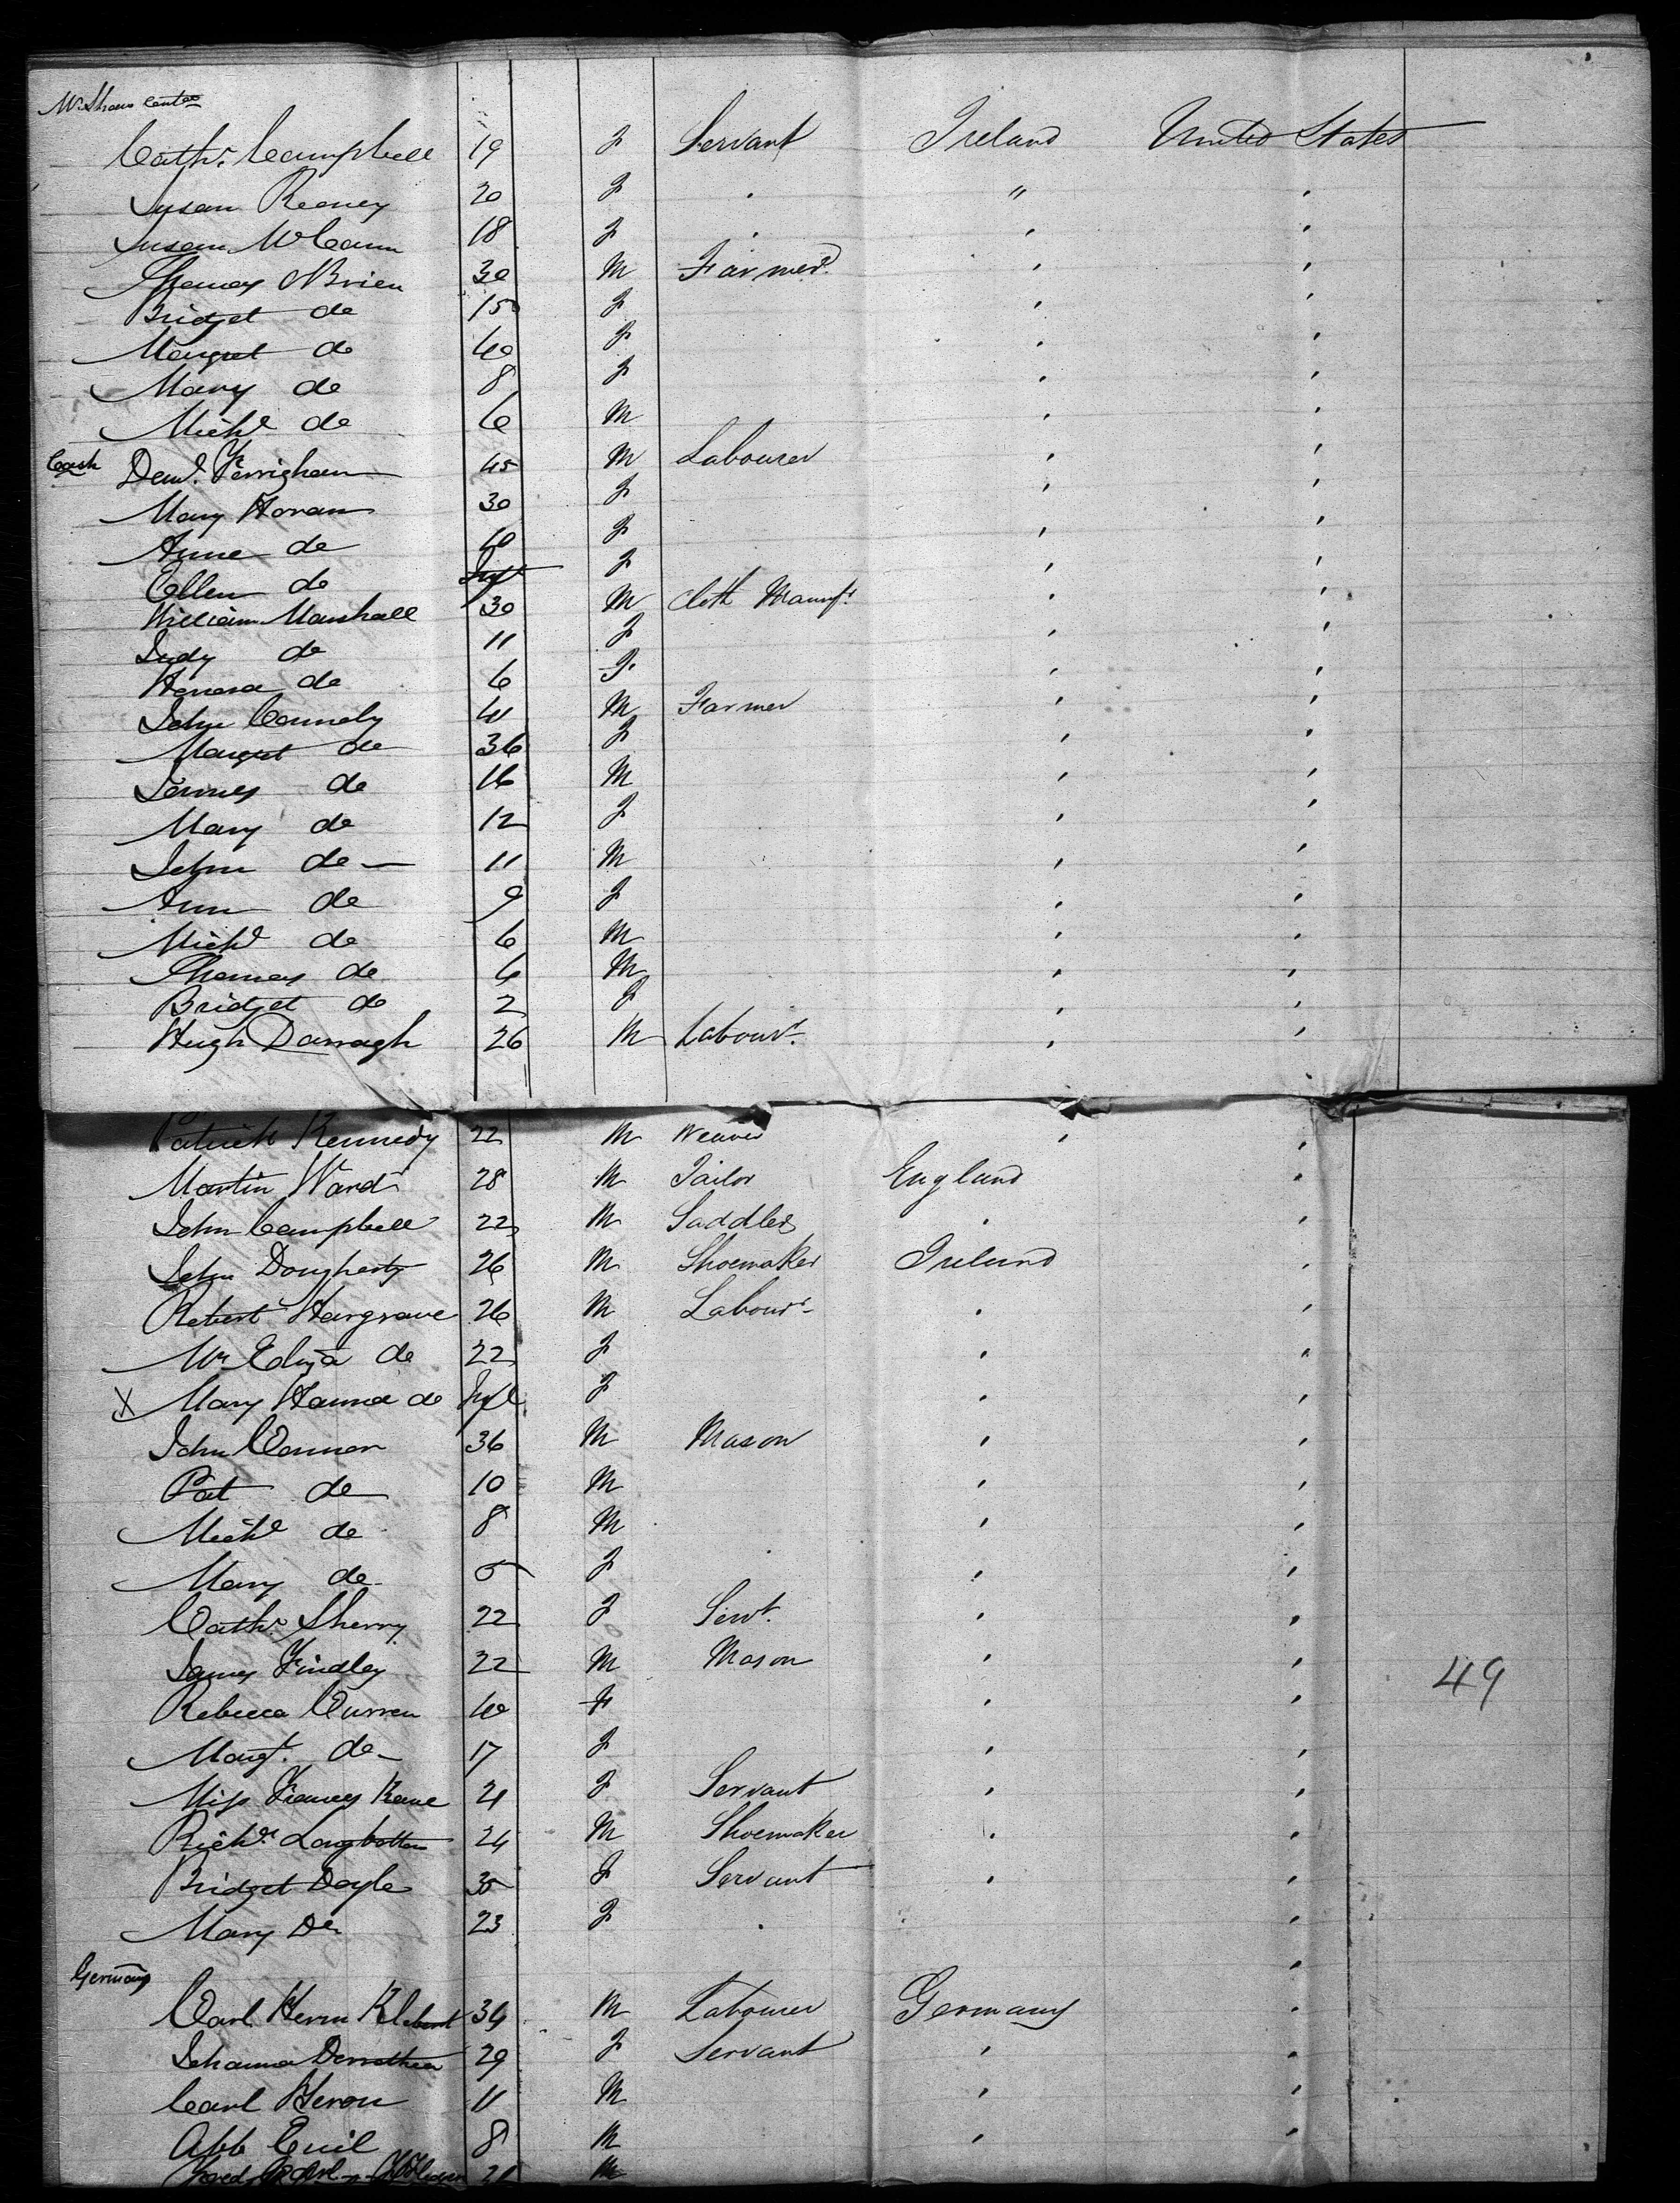 Cathe. Campbell 19 F Servant Ireland United States
Susan Reaney 20 F . " '
Susan McCann 18 F . ' '
Thomas OBrien 30 M Farmer ' '
Bridget do 15 F ' '
Margret do 40 F ' '
Mary do 8 F ' '
Michl do 6 M ' '
Kerrighan 45 M Labourer ' '
Mary Horan 30 F ' '
Anne do 10 F ' '
Ellen do Inft F ' '
William Marshall 30 M Cloth Manuft. ' '
Judy do 11 F ' '
Honora do 6 F ' '
John Connely 41 M Farmer ' '
Margret do 36 F ' '
James do 16 M ' '
Mary do 12 F ' '
John do 11 M ' '
Ann do 9 F ' '
Michl do 6 M ' '
Thomas do M ' '
Bridget do 2 F ' '
Hugh Darragh 26 M Labourr. ' '
Patrick Kennedy 22 M Weaver ' '
Martin Ward 28 M Tailor England '
John Campbell 22 M Saddler ' '
John Dougherty 26 M Shoemaker Ireland '
Robert Hargrave 26 M Labourr ' '
Eliza do 22 F ' '
X Mary Hanna do Inft F ' '
John Connor 36 M Mason ' '
Pat do 10 M ' '
Michl do 8 M ' '
Mary do 5 F ' '
Cathe. Sherry 22 F Servt. ' '
James Findley 22 M Mason ' '
49
Rebecca Curren 40 F ' '
Margt. do 17 F ' '
Miss Frances Kane 21 F Servant ' '
Richd. Longbottom 24 M Shoemaker ' '
Bridget Doyle 35 F Servant ' '
Mary Do 23 F . '
Germany
Carl Herm 34 M Labourer Germany '
Johanna Dorrothea 29 F Servant ' '
Carl Heron 11 M ' '
8 M ' '
M